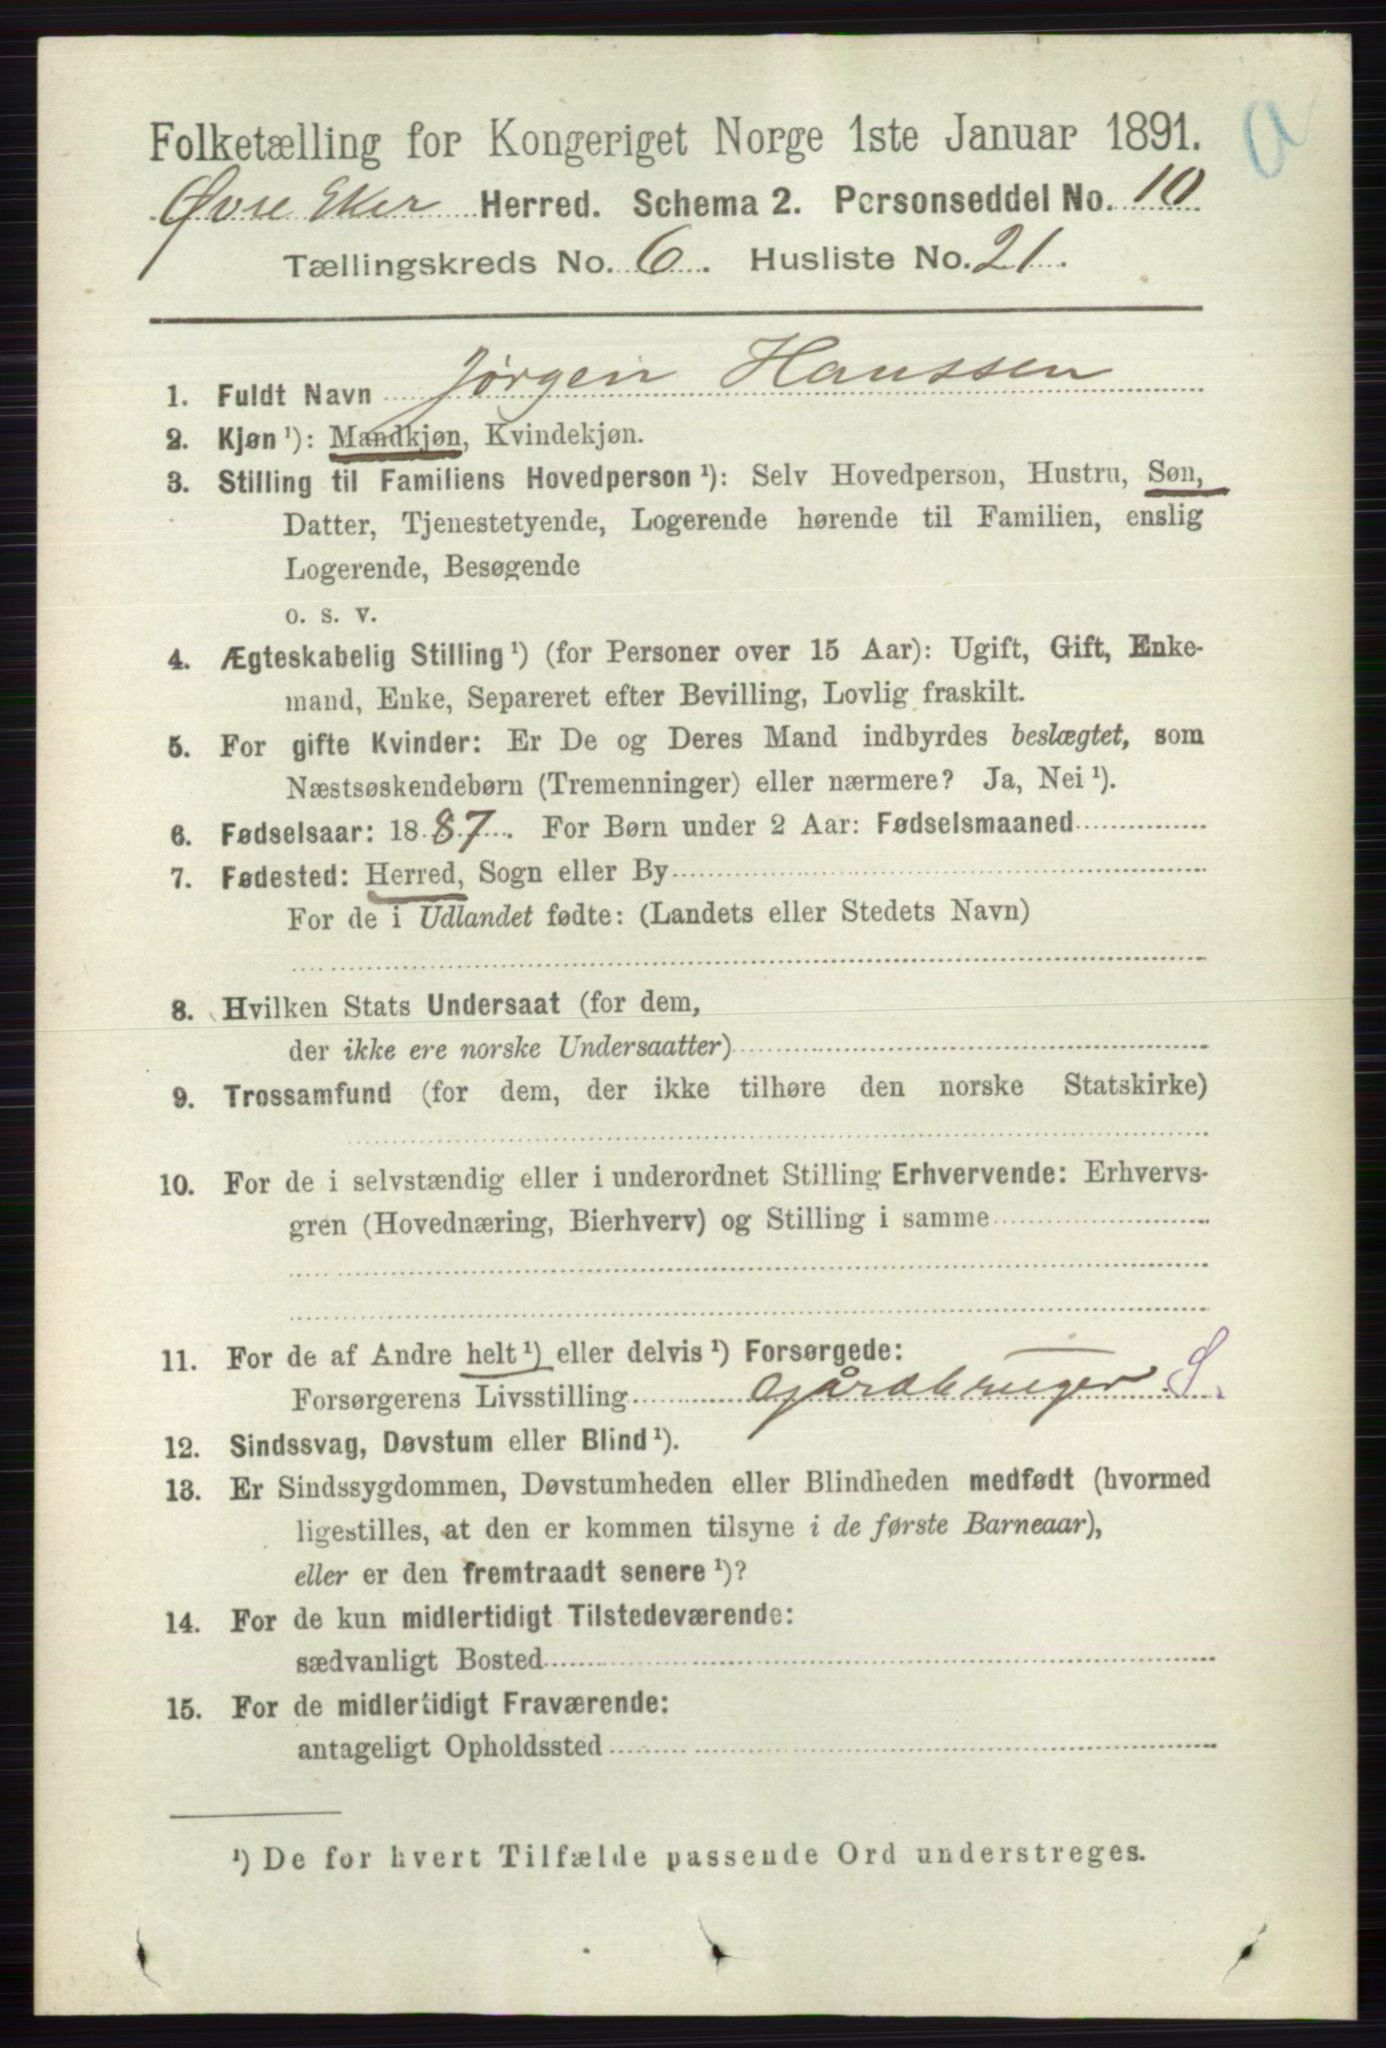 Folketælling for Kongeriget Norge 1ste Januar 1891.
a
Øvre Eker Herred. Schema 2. Personseddel No. 10
Tællingskreds No. 6. Husliste No. 21.
1. Fuldt Navn Jørgen Hanssen
2. Kjøn ¹): Mandkjøn, Kvindekjøn.
3. Stilling til Familiens Hovedperson ¹): Selv Hovedperson, Hustru, Søn,
Datter, Tjenestetyende, Logerende hørende til Familien, enslig
Logerende, Besøgende
o. s. v.
4. Ægteskabelig Stilling ¹) (for Personer over 15 Aar): Ugift, Gift, Enke-
mand, Enke, Separeret efter Bevilling, Lovlig fraskilt.
5. For gifte Kvinder: Er De og Deres Mand indbyrdes beslægtet, som
Næstsøskendebørn (Tremenninger) eller nærmere? Ja, Nei ¹).
6. Fødselsaar: 1887. For Børn under 2 Aar: Fødselsmaaned
7. Fødested: Herred, Sogn eller By
For de i Udlandet fødte: (Landets eller Stedets Navn)
8. Hvilken Stats Undersaat (for dem,
der ikke ere norske Undersaatter)
9. Trossamfund (for dem, der ikke tilhøre den norske Statskirke)
10. For de i selvstændig eller i underordnet Stilling Erhvervende: Erhvervs-
gren (Hovednæring, Bierhverv) og Stilling i samme
11. For de af Andre helt ¹) eller delvis ¹) Forsørgede:
Forsørgerens Livsstilling Gårdbruger S.
12. Sindssvag, Døvstum eller Blind ¹).
13. Er Sindssygdommen, Døvstumheden eller Blindheden medfødt (hvormed
ligestilles, at den er kommen tilsyne i de første Barneaar),
eller er den fremtraadt senere ¹)?
14. For de kun midlertidigt Tilstedeværende:
sædvanligt Bosted
15. For de midlertidigt Fraværende:
antageligt Opholdssted
¹) De for hvert Tilfælde passende Ord understreges.